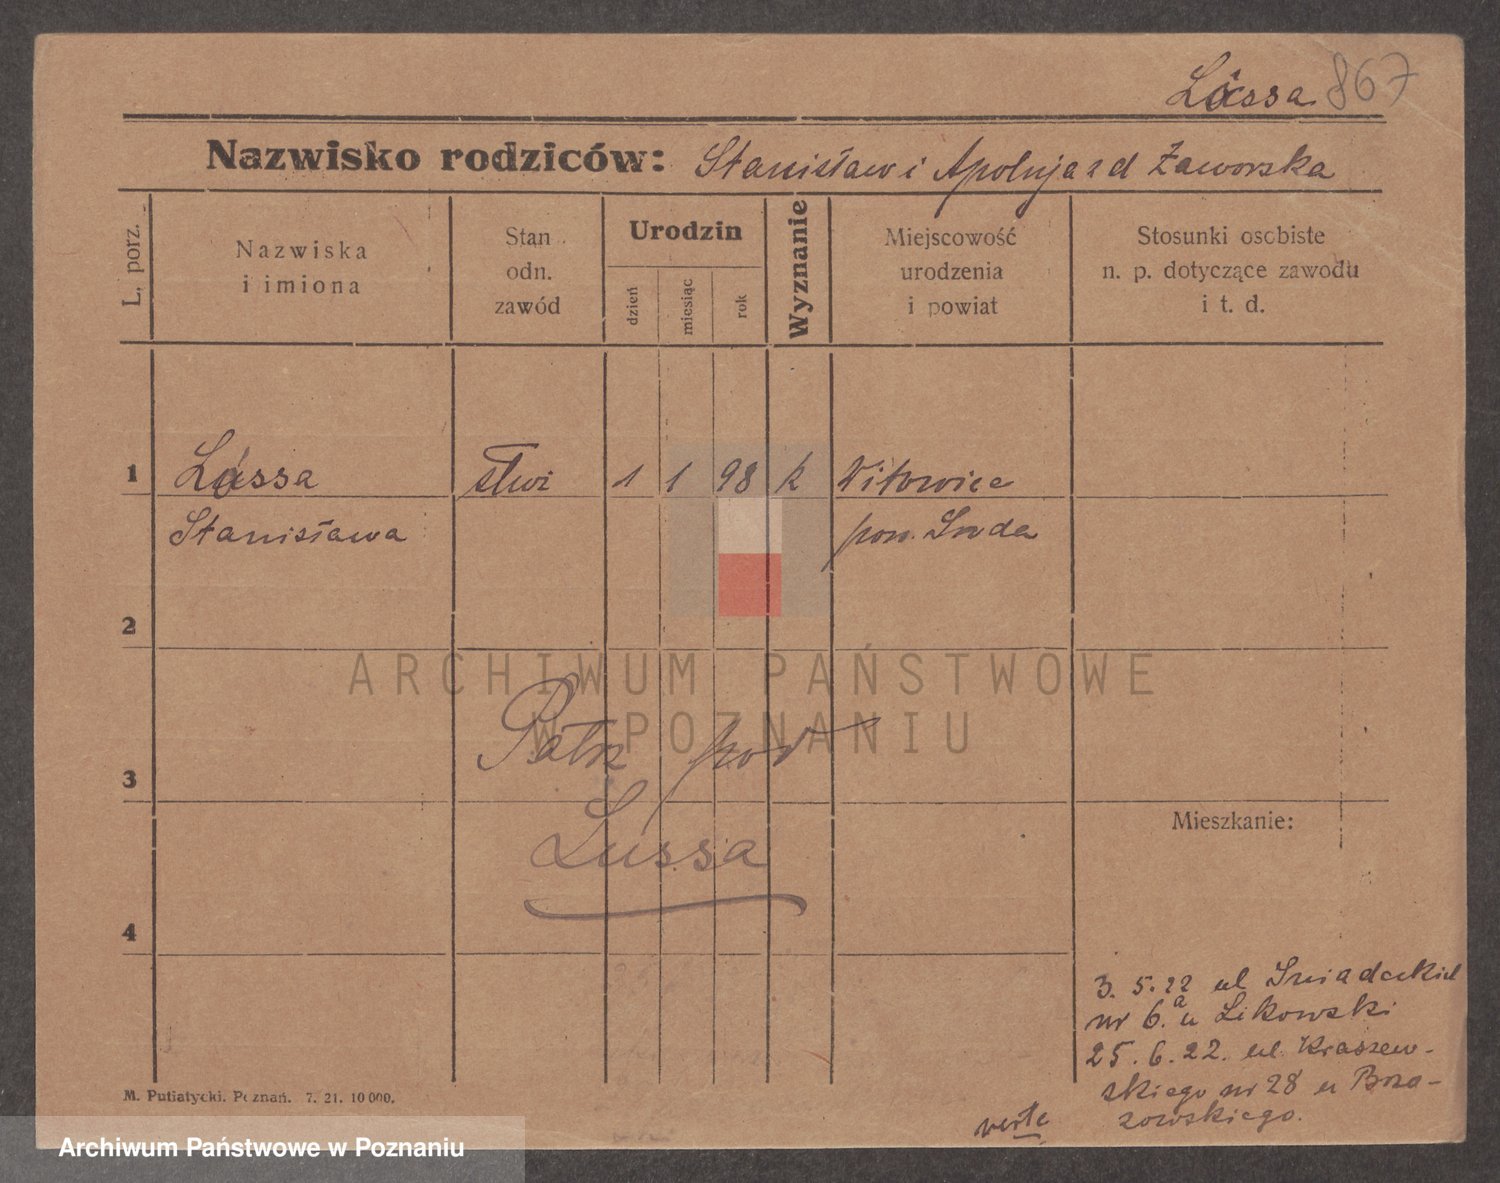 Lássa 867
Nazwisko rodziców: Stanisław i Apolnja z d Zaworska
L. porz.
Nazwiska i imiona
Stan odn. zawód
Urodzin
dzień miesiąc rok
Wyznanie
Miejscowość urodzenia i powiat
Stosunki osobiste n. p. dotyczące zawodu i t. d.
1 Lássa służ 1 1 98 k Witowice
Stanisława pow.
2
ARCHIWUM PAŃSTWOWE
W POZNANIU
Patrz pod
3
Lussa
Mieszkanie:
4
3. 5. 22 ul Śniadeckich
nr 6.a u Likowski
25. 6. 22. ul. Kraszew-
skiego nr 28 u Brza-
zowskiego.
verte
M. Putiatycki. Poznań. 7. 21. 10 000.
Archiwum Państwowe w Poznaniu